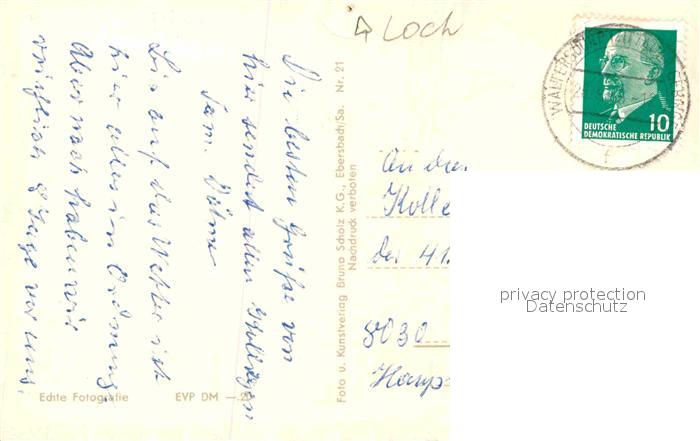 Loch
WALTERSDORF
DEUTSCHE
DEMOKRATISCHE REPUBLIK
10
Die besten Grüße von
hier sendet allen Kollegen
Fam. Böhme
Bis auf das Wetter ist
hier alles in Ordnung.
Aber noch haben wir
reichlich 8 Tage vor uns.
Foto u. Kunstverlag Bruno Scholz K.G., Ebersbach/Sa. Nr. 21
Nachdruck verboten
An die
Kolle
der 41.
8030
Echte Fotografie EVP DM —.20
privacy protection
Datenschutz